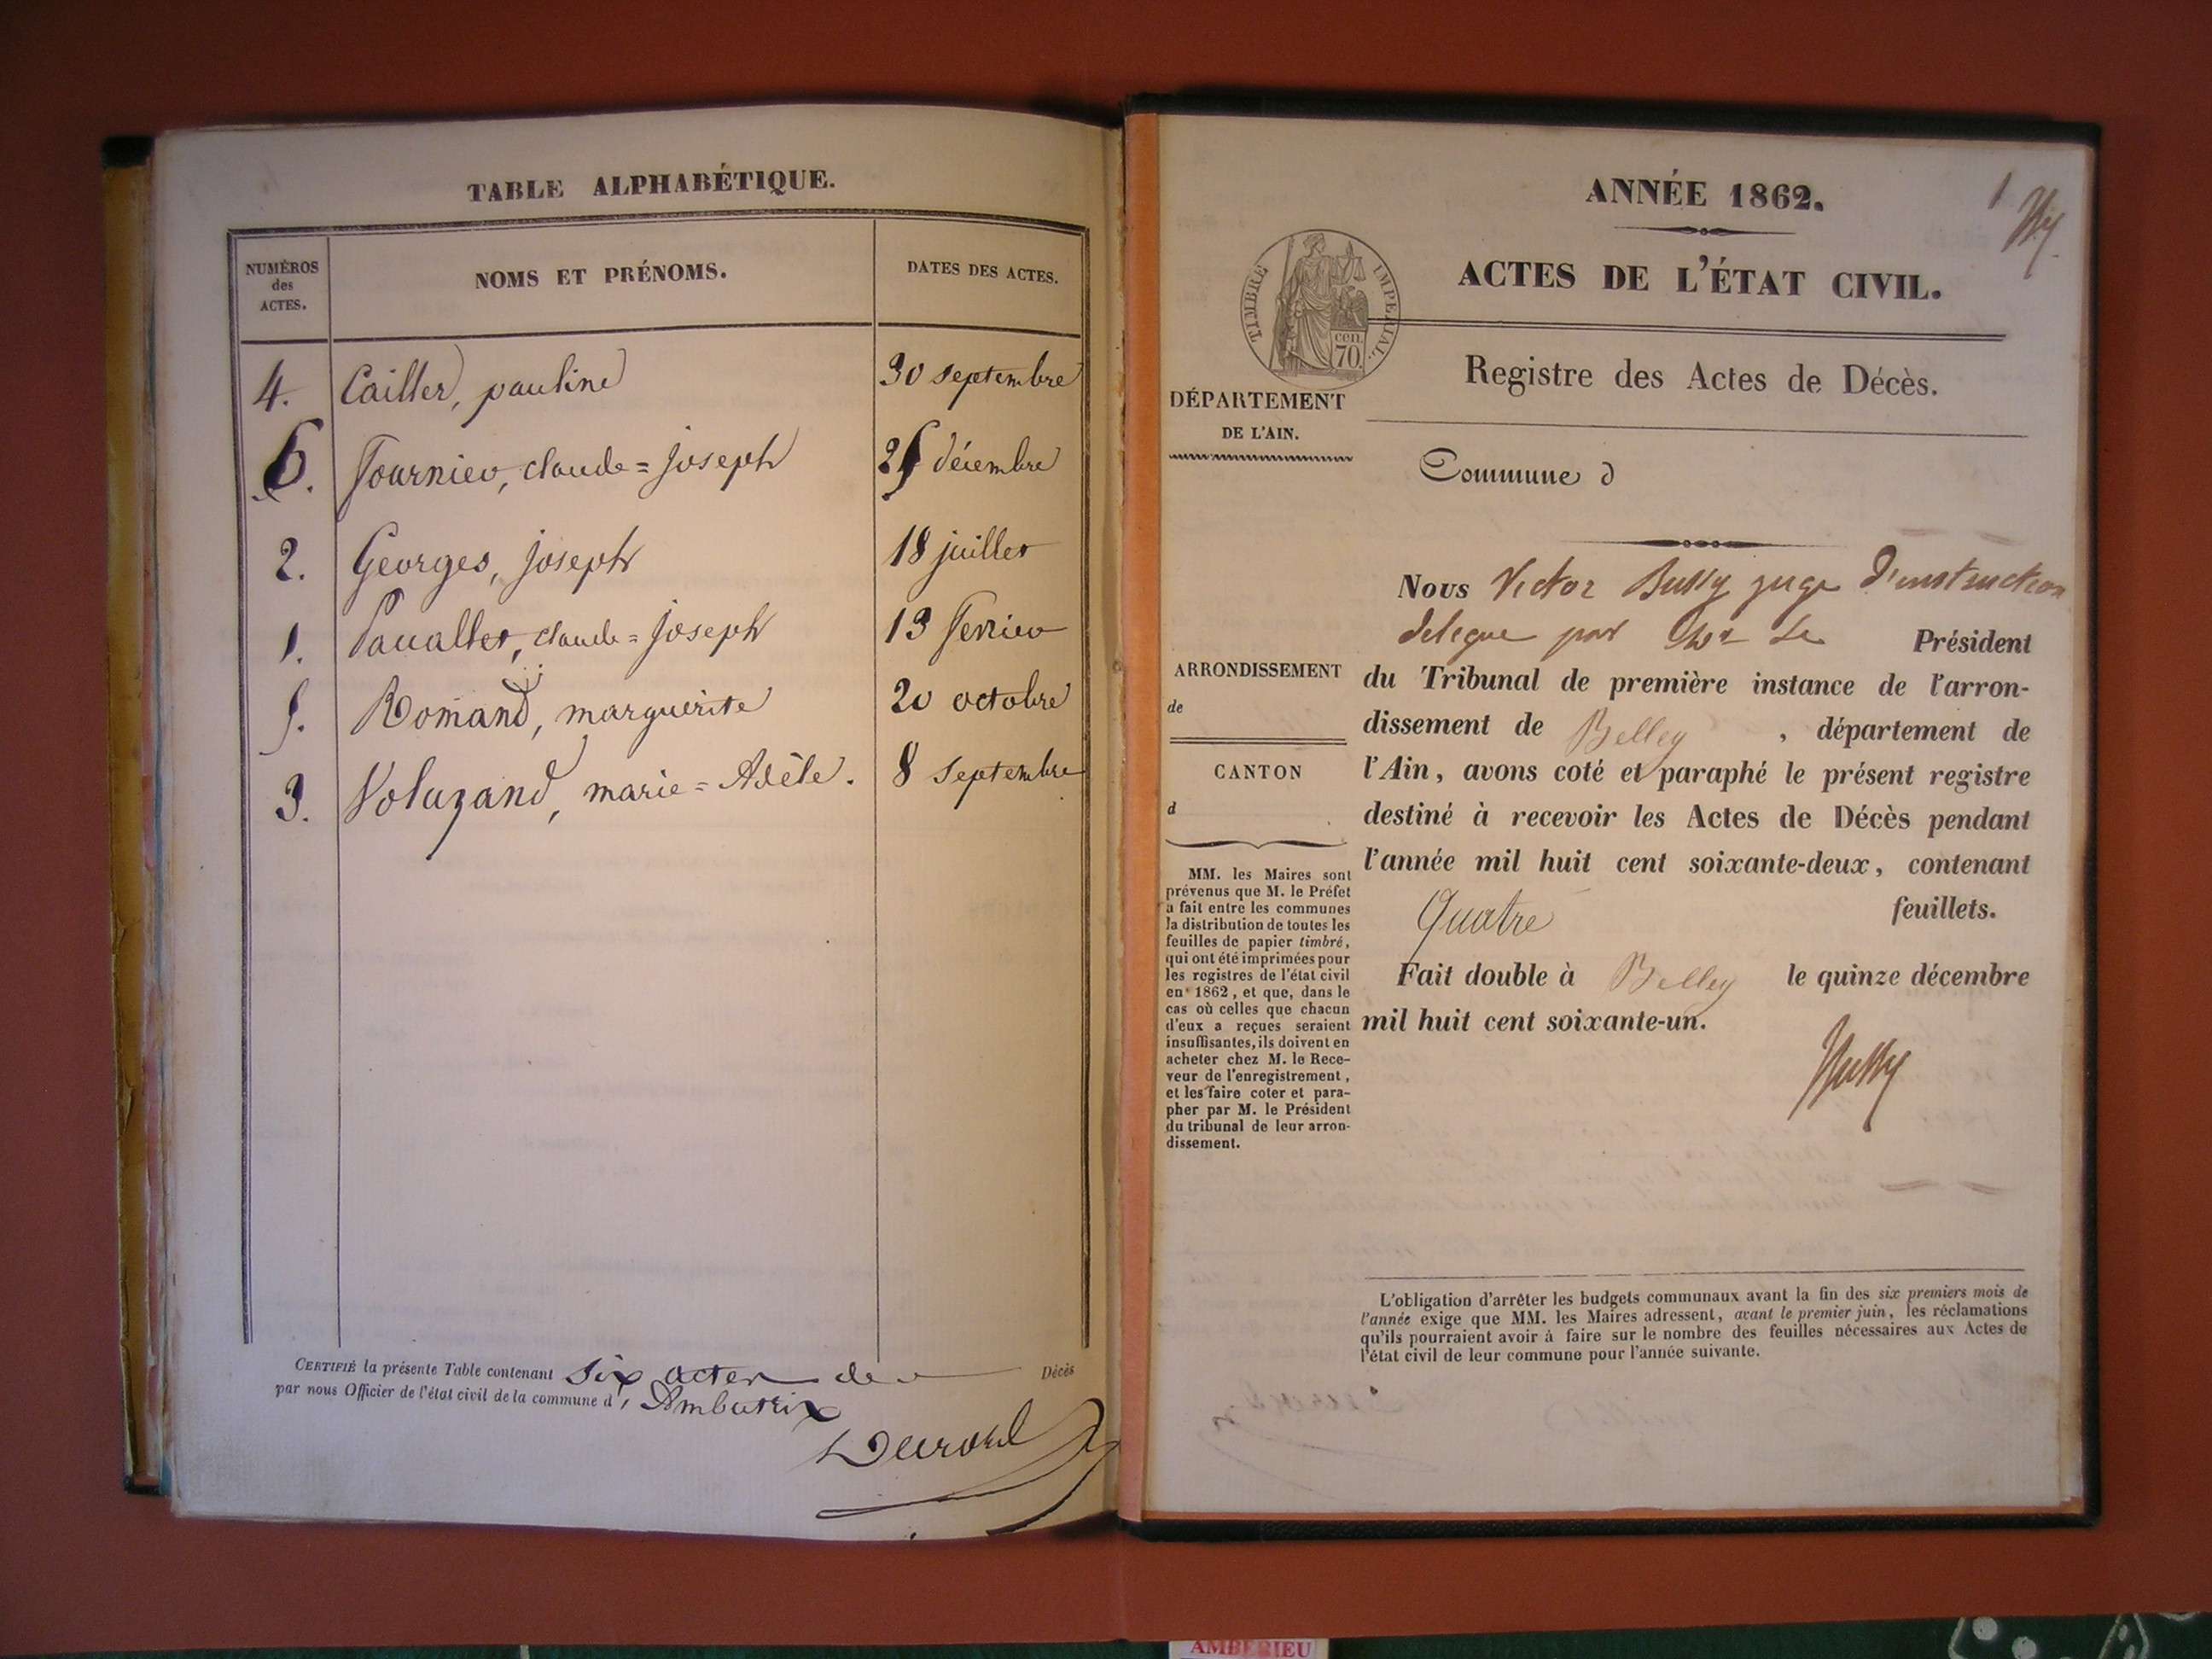 TABLE ALPHABÉTIQUE.
NUMÉROS des ACTES.
NOMS ET PRÉNOMS.
DATES DES ACTES.
4. Caillet, pauline 30 septembre
6. Fournier, claude=Joseph décembre
2. Georges, Joseph 18 juillet
1. claude=Joseph 13 fevrier
5. Romand, marguerite 20 octobre
3. Volazand, marie=Adèle. 8 septembre
CERTIFIÉ la présente Table contenant six actes de Décès
par nous Officier de l'état civil de la commune d'Ambutrix
1
ANNÉE 1862.
TIMBRE IMPÉRIAL.
cen.
70.
ACTES DE L'ÉTAT CIVIL.
Registre des Actes de Décès.
DÉPARTEMENT
DE L'AIN.
Commune d
ARRONDISSEMENT
de
CANTON
d
MM. les Maires sont
prévenus que M. le Préfet
a fait entre les communes
la distribution de toutes les
feuilles de papier timbré,
qui ont été imprimées pour
les registres de l'état civil
en 1862, et que, dans le
cas où celles que chacun
d'eux a reçues seraient
insuffisantes, ils doivent en
acheter chez M. le Rece-
veur de l'enregistrement,
et les faire coter et para-
pher par M. le Président
du tribunal de leur arron-
dissement.
Nous Victor Bussy juge d'instruction
delegue par Mr Le Président
du Tribunal de première instance de l'arron-
dissement de Belley, département de
l'Ain, avons coté et paraphé le présent registre
destiné à recevoir les Actes de Décès pendant
l'année mil huit cent soixante-deux, contenant
Quatre feuillets.
Fait double à Belley le quinze décembre
mil huit cent soixante-un.
Bussy
L'obligation d'arrêter les budgets communaux avant la fin des six premiers mois de
l'année exige que MM. les Maires adressent, avant le premier juin, les réclamations
qu'ils pourraient avoir à faire sur le nombre des feuilles nécessaires aux Actes de
l'état civil de leur commune pour l'année suivante.
AMBERIEU